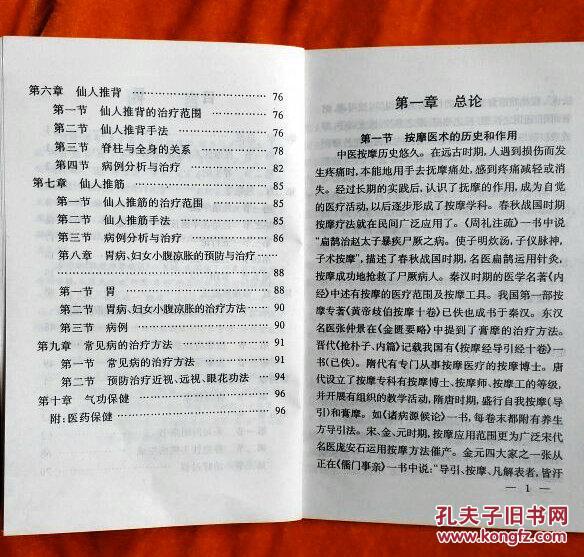 第六章 仙人推背 ……………… 76
第一节 仙人推背的治疗范围 ……………… 76
第二节 仙人推背手法 ……………… 76
第三节 脊柱与全身的关系 ……………… 78
第四节 病例分析与治疗 ……………… 82
第七章 仙人推筋 ……………… 85
第一节 仙人推筋的治疗范围 ……………… 85
第二节 仙人推筋手法 ……………… 85
第三节 病例分析与治疗 ……………… 86
第八章 胃病、妇女小腹凉胀的预防与治疗 ……
……………… 88
第一节 胃 ……………… 88
第二节 胃病、妇女小腹凉胀的治疗方法 …… 90
第三节 病例 ……………… 90
第九章 常见病的治疗方法 ……………… 91
第一节 常见病的治疗方法 ……………… 91
第二节 预防治疗近视、远视、眼花功法 …… 94
第十章 气功保健 ……………… 96
附:医药保健 ……………… 96
第一章 总论
第一节 按摩医术的历史和作用
中医按摩历史悠久。在远古时期,人遇到损伤而发
生疼痛时,本能地用手去抚摩痛处,感到疼痛减轻或消
失。经过长期的实践后,认识了抚摩的作用,成为自觉
的医疗活动,以后逐步形成了按摩学科。春秋战国时期
按摩疗法就在民间广泛应用了。《周礼注疏》一书中说
“扁鹊治赵太子暴疾尸厥之病。使子明炊汤,子仪脉神,
子术按摩”,描述了春秋战国时期,名医扁鹊运用针灸、
按摩成功地抢救了尸厥病人。秦汉时期的医学名著《内
经》中述有按摩的医疗范围及按摩工具。我国第一部按
摩专著《黄帝歧伯按摩十卷》已佚也成书于秦汉。东汉
名医张仲景在《金匮要略》中提到了膏摩的治疗方法。
晋代《抢朴子、内篇》记载我国有《按摩经导引经十卷》一
书(已佚)。隋代有专门从事按摩医疗的按摩博士。唐
代设立了按摩专科有按摩博士、按摩师、按摩工的等级,
并开展有组织的教学活动,隋唐时期,盛行自我按摩(导
引)和膏摩。如《诸病源候论》一书,每卷末都附有养生
方导引法。宋、金、元时期,按摩应用范围更为广泛宋代
名医庞安石运用按摩方法催产。金元四大家之一张从
正在《儒门事亲》一书中说:“导引、按摩、凡解表者,皆汗
— 1 —
孔夫子旧书网
www.kongfz.com